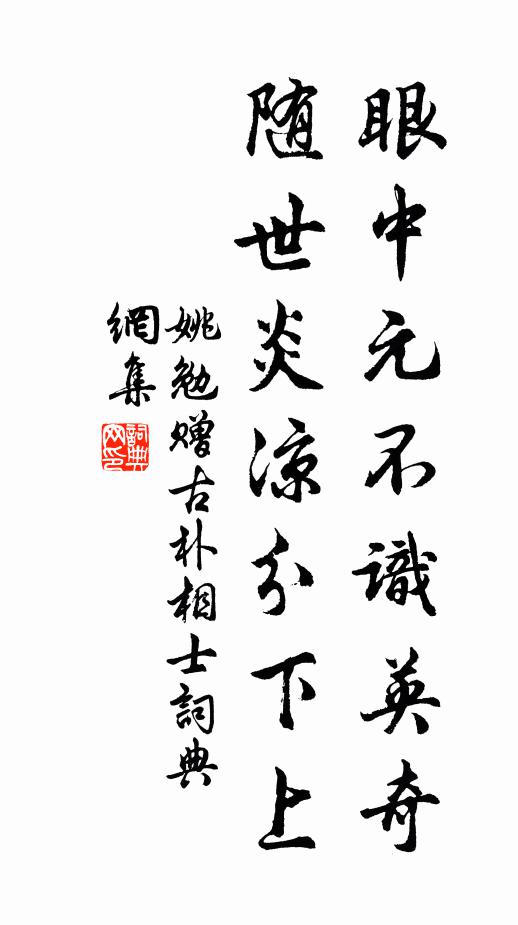 眼中元不識英奇
随世炎涼分下上
姚勉贈古朴相士詞典
網集
詞典
网印